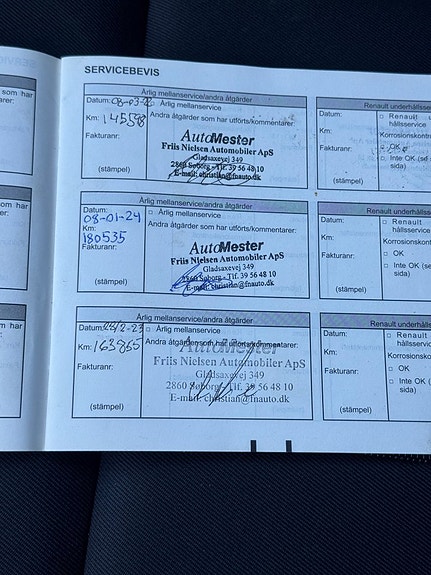 SERVICEBEVIS
Årlig mellanservice/andra åtgärder
Datum: 08-03-22 □ Årlig mellanservice
Km: 145598 Andra åtgärder som har utförts/kommentarer:
Fakturanr:
(stämpel)
AutoMester
Friis Nielsen Automobiler ApS
Gladsaxevej 349
2860 Søborg - Tlf. 39 56 48 10
E-mail: christian@fnauto.dk
Renault underhålls
Datum:
□ Renault
hållsservice
Km:
Korrosionskontr
Fakturanr:
OK
□ Inte OK (se
sida)
(stämpel)
Årlig mellanservice/andra åtgärder
Datum: □ Årlig mellanservice
08-01-24
Andra åtgärder som har utförts/kommentarer:
Km:
180535
Fakturanr:
(stämpel)
AutoMester
Friis Nielsen Automobiler ApS
Gladsaxevej 349
2860 Søborg - Tlf. 39 56 48 10
E-mail: christian@fnauto.dk
Renault underhålls
Datum:
□ Renault
hållsservice
Km:
Korrosionskont
Fakturanr:
□ OK
□ Inte OK (se
sida)
(stämpel)
Årlig mellanservice/andra åtgärder
Datum: 28/2-23 □ Årlig mellanservice
Km: 163855 Andra åtgärder som har utförts/kommentarer:
Fakturanr:
(stämpel)
AutoMester
Friis Nielsen Automobiler ApS
Gladsaxevej 349
2860 Søborg - Tlf. 39 56 48 10
E-mail: christian@fnauto.dk
Renault underhålls
Datum:
□ Renault
hållsservice
Km:
Korrosionsko
Fakturanr:
□ OK
□ Inte OK (
sida)
(stämpel)